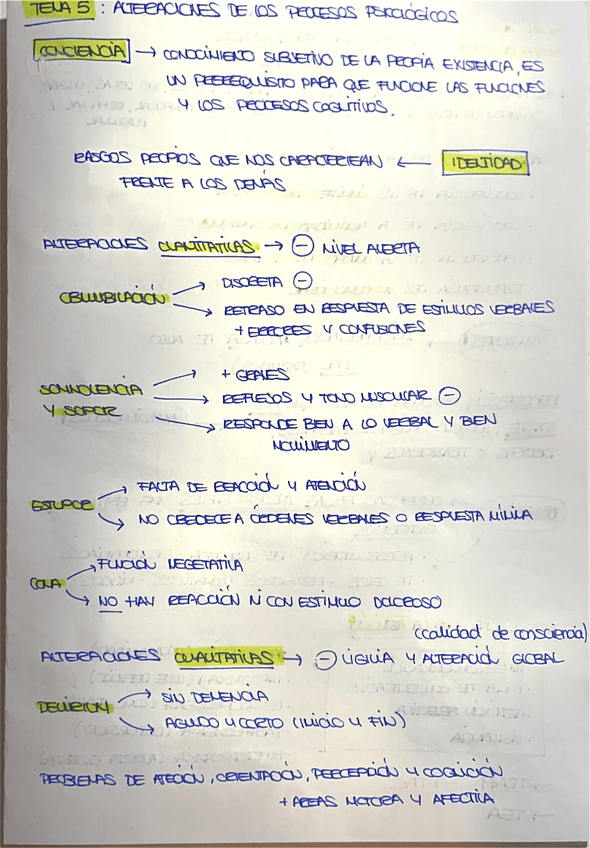 TEMA 5 : ALTERACIONES DE LOS PROCESOS PSICOLÓGICOS
CONCIENCIA → CONOCIMIENTO SUBJETIVO DE LA PROPIA EXISTENCIA, ES
UN PREREQUISITO PARA QUE FUNCIONE LAS FUNCIONES
Y LOS PROCESOS COGNITIVOS.
RASGOS PROPIOS QUE NOS CARACTERIZAN ← IDENTIDAD
FRENTE A LOS DEMÁS
ALTERACIONES CUANTITATIVAS → ⊖ NIVEL ALERTA
OBNUBILACIÓN → DISCRETA ⊖
→ RETRASO EN RESPUESTA DE ESTÍMULOS VERBALES
+ ERRORES Y CONFUSIONES
SOMNOLENCIA Y SOPOR → + GRAVES
→ REFLEJOS Y TONO MUSCULAR ⊖
→ RESPONDE BIEN A LO VERBAL Y BIEN
MOVIMIENTO
ESTUPOR → FALTA DE REACCIÓN Y ATENCIÓN
→ NO OBEDECE A ÓRDENES VERBALES O RESPUESTA MÍNIMA
COMA → FUNCIÓN VEGETATIVA
→ NO HAY REACCIÓN NI CON ESTÍMULO DOLOROSO
(calidad de consciencia)
ALTERACIONES CUALITATIVAS → ⊖ VIGILIA Y ALTERACIÓN GLOBAL
DELIRIUM → SIN DEMENCIA
→ AGUDO Y CORTO (INICIO Y FIN)
PROBLEMAS DE ATENCIÓN, ORIENTACIÓN, PERCEPCIÓN Y COGNICIÓN
+ AREAS MOTORA Y AFECTIVA